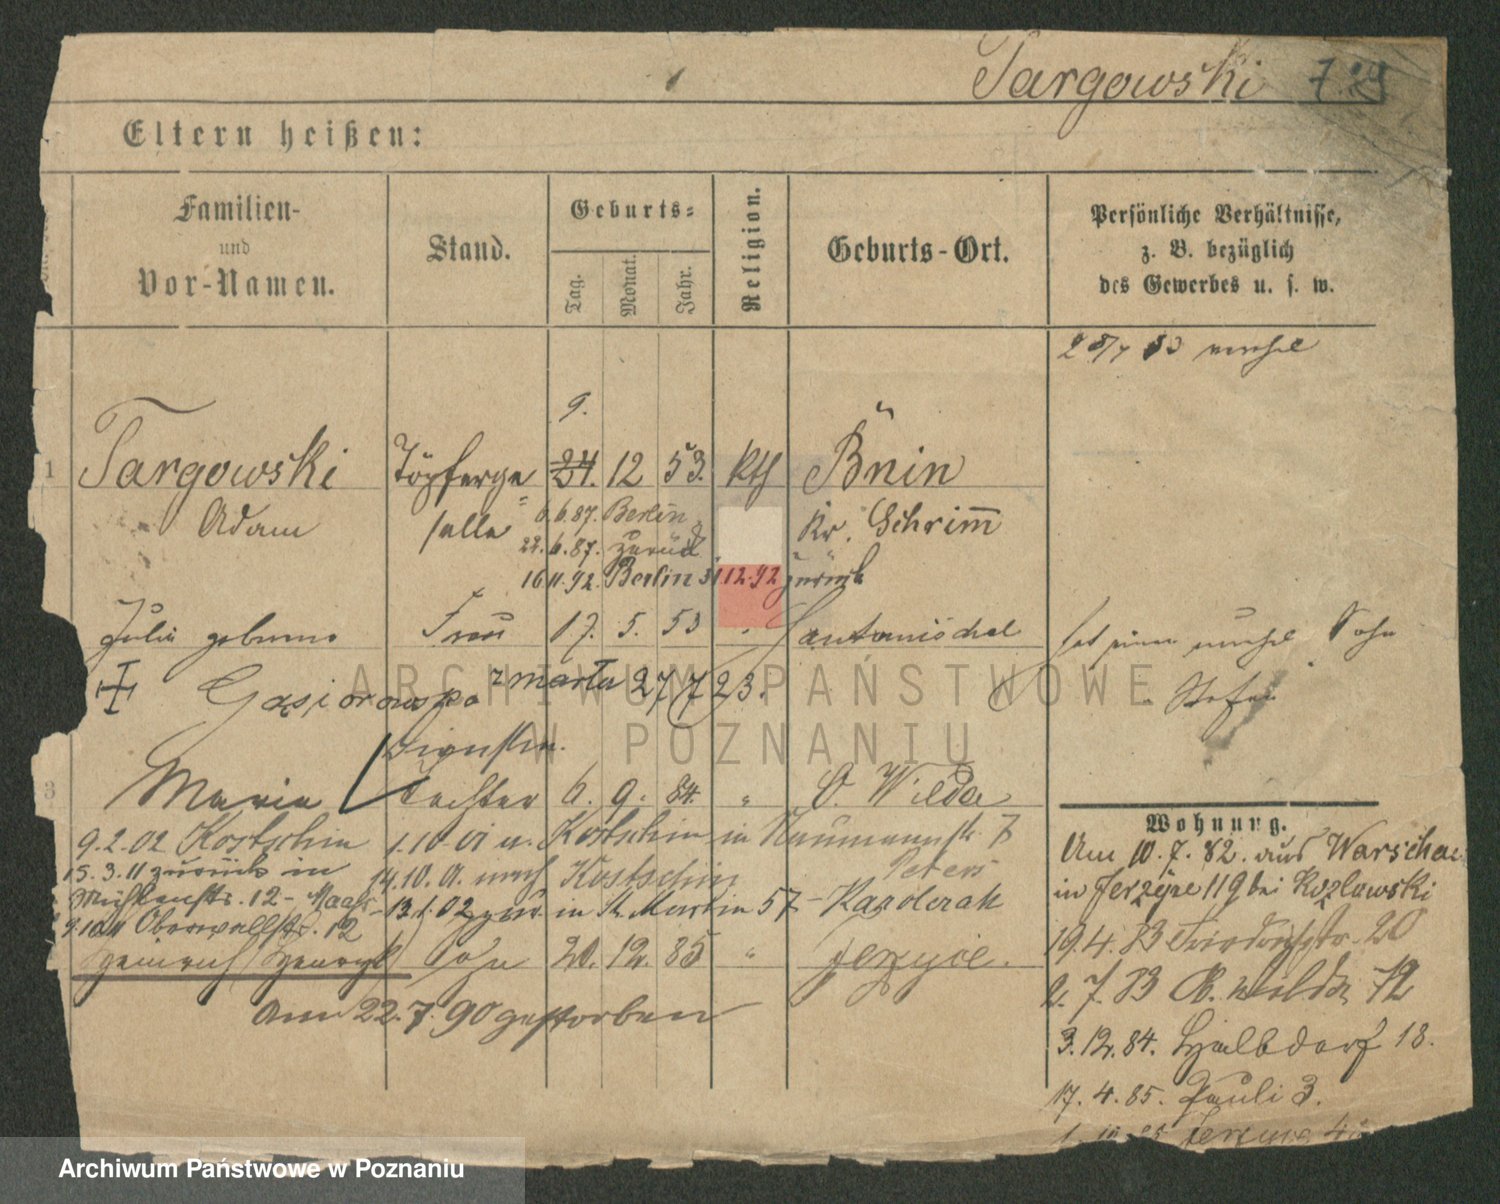 Targowski
Eltern heißen:
Familien-
und
Vor-Namen.
Stand.
Geburts-
Tag.
Monat.
Jahr.
Religion.
Geburts-Ort.
Persönliche Verhältnisse,
z. B. bezüglich
des Gewerbes u. s. w.
9.
1 Targowski Töpferge= 24. 12 53. Kth Bnin
Adam selle 6.6.87. Berlin Kr. Schrimm
22.6.87. zurück
16.11.92. Berlin 31.12.92 zurück
Julie geborene Frau 17. 5. 53 Santomischel hat einen unehel Sohn
Gąsiorowska zmarła 27/7 23. Stefan
3 Maria Tochter 6. 9. 84. " O. Wilda
9.2.02 Kostschin 1.10.01 n. Kostschin in Naumannstr. 7
Peters
15.3.11 zurück in 14.10.01. nach Kostschin
12 13.1.02 zur. in St. Martin 57 - Kaczlerak
Oberwallstr. 12
Heinrich (Henryk) Sohn 20. 12. 85 " Jerzyce.
am 22.7.90 gestorben
Wohnung.
Am 10.7.82. aus Warschau
in Jerzyce 119 bei Kozlowski
19.4.83 Friedrichstr. 20
2.7.83 O. Wilda 72
3.12.84. Halbdorf 18.
17.4.85. Pauli 3.
Jerzyce
ARCHIWUM PAŃSTWOWE
W POZNANIU
Archiwum Państwowe w Poznaniu